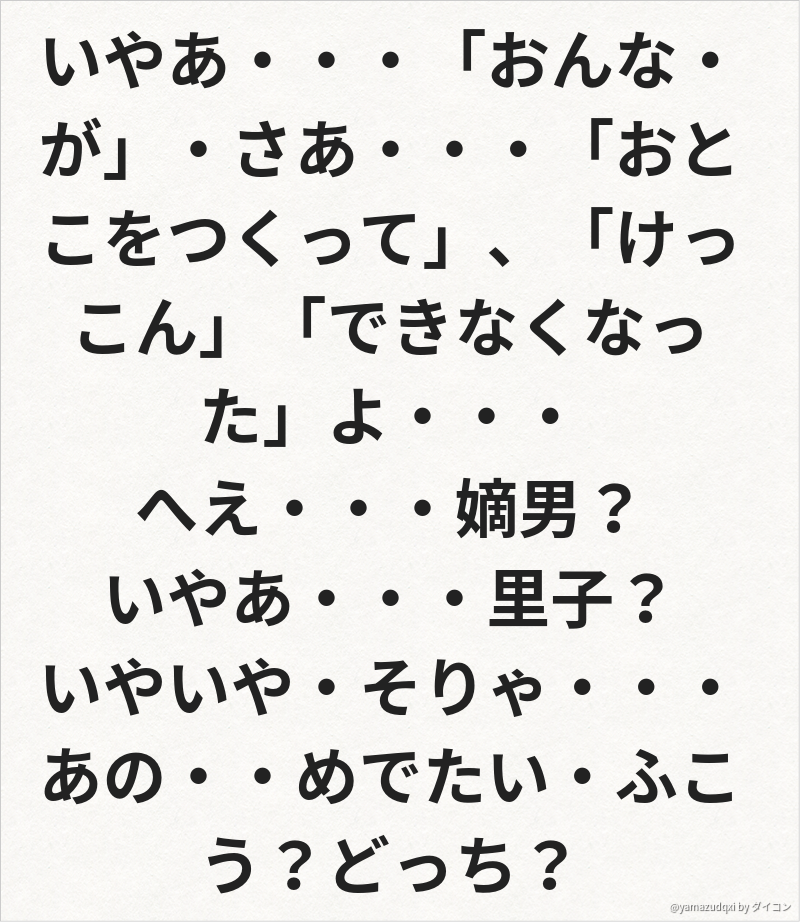 いやあ・・・「おんな・
が」・さあ・・・「おと
こをつくって」、「けっ
こん」「できなくなっ
た」よ・・・
へえ・・・嫡男？
いやあ・・・里子？
いやいや・そりゃ・・・
あの・・めでたい・ふこ
う？どっち？
@yamazudqxi by ダイコン